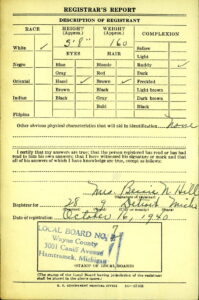 REGISTRAR'S REPORT
DESCRIPTION OF REGISTRANT
RACE
HEIGHT (Approx.)
WEIGHT (Approx.)
COMPLEXION
White ✓
5' 9"
160
Sallow
EYES
HAIR
Light
Ruddy ✓
Negro
Blue
Blonde
Dark
Gray
Red
Freckled
Oriental
Hazel ✓
Brown ✓
Light brown
Brown
Black
Dark brown
Indian
Black
Gray
Black
Bald
Filipino
Other obvious physical characteristics that will aid in identification None
I certify that my answers are true; that the person registered has read or has had
read to him his own answers; that I have witnessed his signature or mark and that
all of his answers of which I have knowledge are true, except as follows:
Mrs. N. Hill
Registrar for 28 9 Detroit Mich
Date of registration October 16, 1940
LOCAL BOARD NO. 7
Wayne County
3001 Caniff Avenue
Hamtramck, Michigan
(STAMP OF LOCAL BOARD)
(The stamp of the Local Board having jurisdiction of the registrant
shall be placed in the above space.)
U. S. GOVERNMENT PRINTING OFFICE